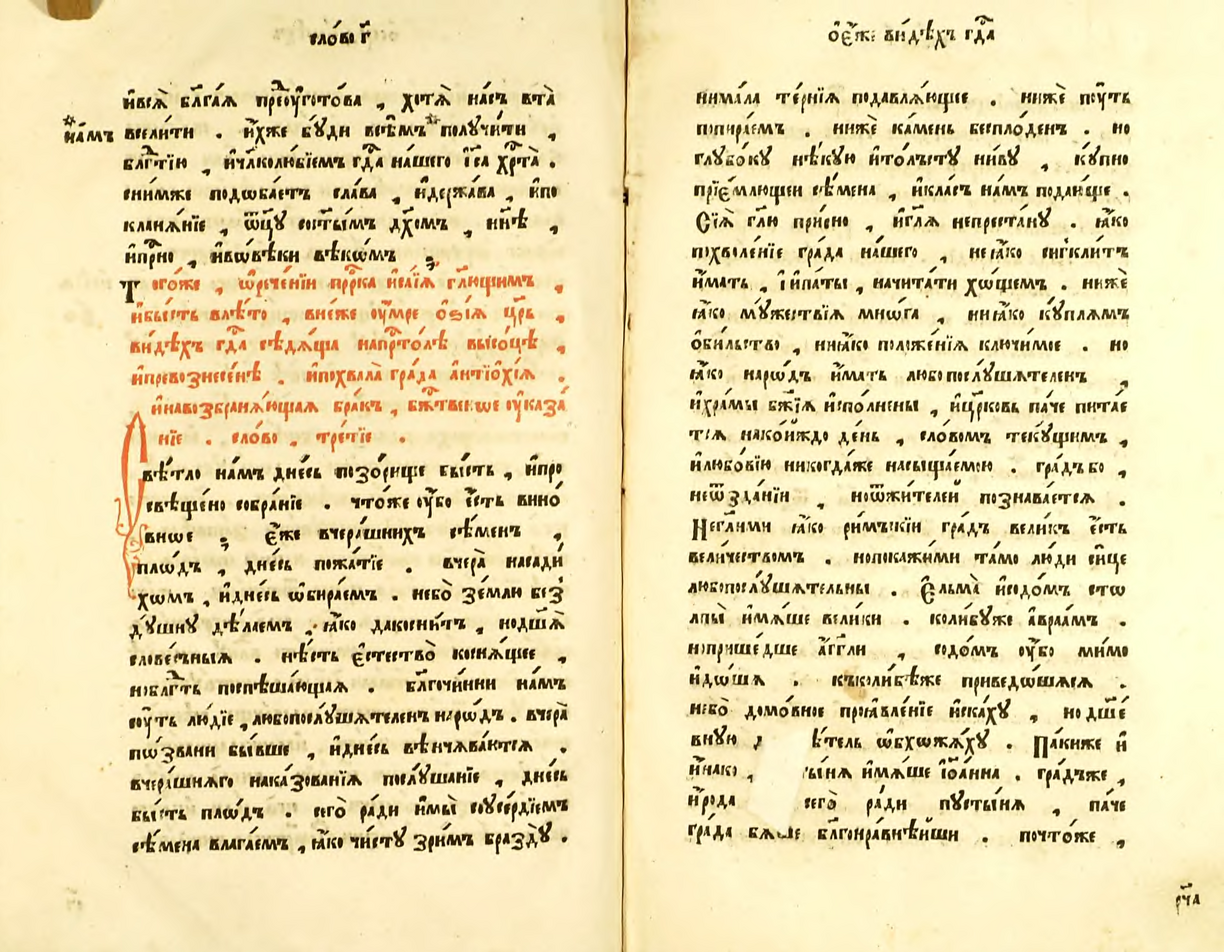 сло́во г҃
и҆всѧ̀ блг҃а́ѧ прео у҆гото́ва , хотѧ̀ на́съ вта̀
на́мъ вселити . и҆́хже бу́ди всѣ́мъ получи́ти ,
блгⷣтїю , и҆чл҃колю́бїемъ гдⷭ҇а на́шего і҆са хрⷭ҇та̀ .
снимже подѡба́етъ сла́ва , и҆держа́ва , и҆по
кланѧ́нїе , ѿц҃у состы́мъ дх҃омъ , нн҃ѣ ,
и҆прⷭ҇но , и҆вовѣки вѣкѡ́мъ .
Того́же , ѡ҆рече́нїи прⷪ҇рка и҆са́їѧ гл҃ющимъ ,
и҆бы́сть влѣ́то , вне́же о у҆́мре ѻ҆зі́ѧ цр҃ь ,
ви́дѣхъ гдⷭ҇а сѣдѧ́ща напрⷭ҇то́лѣ высо́цѣ ,
и҆превознесе́нѣ . и҆похвала̀ гра́да а҆нтїо́хїѧ .
и҆навозбранѧ́ющаѧ бра́къ , бж҃твенѡе о у҆каза́
нїе . сло́во , тре́тїе .
Свѣ́тло на́мъ дне́сь позо́рище бы́сть , и҆про
свѣще́но собра́нїе . что́же о у҆́бо є҆́сть вино́
внѡе ; є҆́же вчера́шнихъ сѣ́менъ ,
плѡ́дъ , дне́сь пожа́тїе . вчера̀ насади́
хѡмъ , и҆дне́сь ѡ҆бира́емъ . небо̀ зе́млю без
ду́шну дѣ́лаемъ , ꙗ҆́ко дакосни́тъ , нодш҃ѧ̀
слове́сныѧ . нѣ́сть є҆стество̀ коснѧ́щее ,
ноблгⷣть поспѣша́ющаѧ . благочи́нни на́мъ
су́ть лю́дїе , любопослу́шѧтеленъ наро́дъ . вчера̀
пѡ́звани бы́вше , и҆дне́сь вѣнчѧва́ютсѧ .
вчера́шнѧго наказова́нїѧ послуша́нїе , дне́сь
бы́сть плѡ́дъ . сего̀ ра́ди и҆мы̀ соусе́рдїемъ
сѣ́мена влага́емъ , ꙗ҆́ко чи́сту зри́мъ бразду̀ .
ѻ҆є҆́же ви́дѣхъ гдⷭ҇а
нима́ла те́рнїѧ подавлѧ́ющее . нижѐ пу́ть
попира́емъ . нижѐ ка́мень беспло́денъ . но
глубо́ку нѣ́кую и҆то́лъсту ни́ву , ку́пно
прїе́млющеи сѣ́мена , и҆кла́съ на́мъ подаю́ще .
Сїѧ̀ гл҃ю при́сно , и҆гл҃ѧ непреста́ну . ꙗ҆́ко
похвале́нїе гра́да на́шего , неꙗ҆́ко сигкли́тъ
и҆́мать , і҆и҆па́ты , начита́ти хо́щемъ . нижѐ
ꙗ҆́ко му́жествїѧ мнѡ́га , ниꙗ҆́ко ку́плѧмъ
ѻ҆би́льство , ниꙗ҆́ко положе́нїѧ ключи́мое . но
ꙗ҆́ко наро́дъ и҆́мать любопослу́шѧтеленъ ,
и҆хра́мы бж҃їѧ и҆спо́лнены , и҆цр҃ковь па́че пита́е
тсѧ нако́ийждо де́нь , сло́вомъ теку́щимъ ,
и҆любо́вїю никогда́же насыща́емою . гра́дъ бо ,
неѿзда́нїи , ноѿжи́телей познава́етсѧ .
Негл҃ими ꙗ҆́ко ри́мъскїи гра́дъ вели́къ є҆́сть
вели́чествомъ . нопокажи́ми та́мо лю́ди си́це
любопослу́шѧтельны . Є҆льма̀ и҆содо́мъ сто
лпы̀ и҆мѧ́ше вели́ки . коли́бу же а҆враа́мъ .
ноприше́дше а҆́гг҃ли , содо́мъ о у҆́бо ми́мо
и҆до́шѧ . къколи́бѣже приведо́шѧсѧ .
небо̀ домо́вное проѧвле́нїе и҆ска́ху , но дш҃е́
вную ѣтель ѡ҆бхожѧ́ху . Па́киже и҆
и҆́нако , ы́нѧ и҆мѧ́ше і҆ѻа́нна . гра́дъже ,
и҆́рода сего̀ ра́ди пусты́нѧ , па́че
гра́да бѧ́ше благонра́внѣйши . почто́же ,
рч҃а